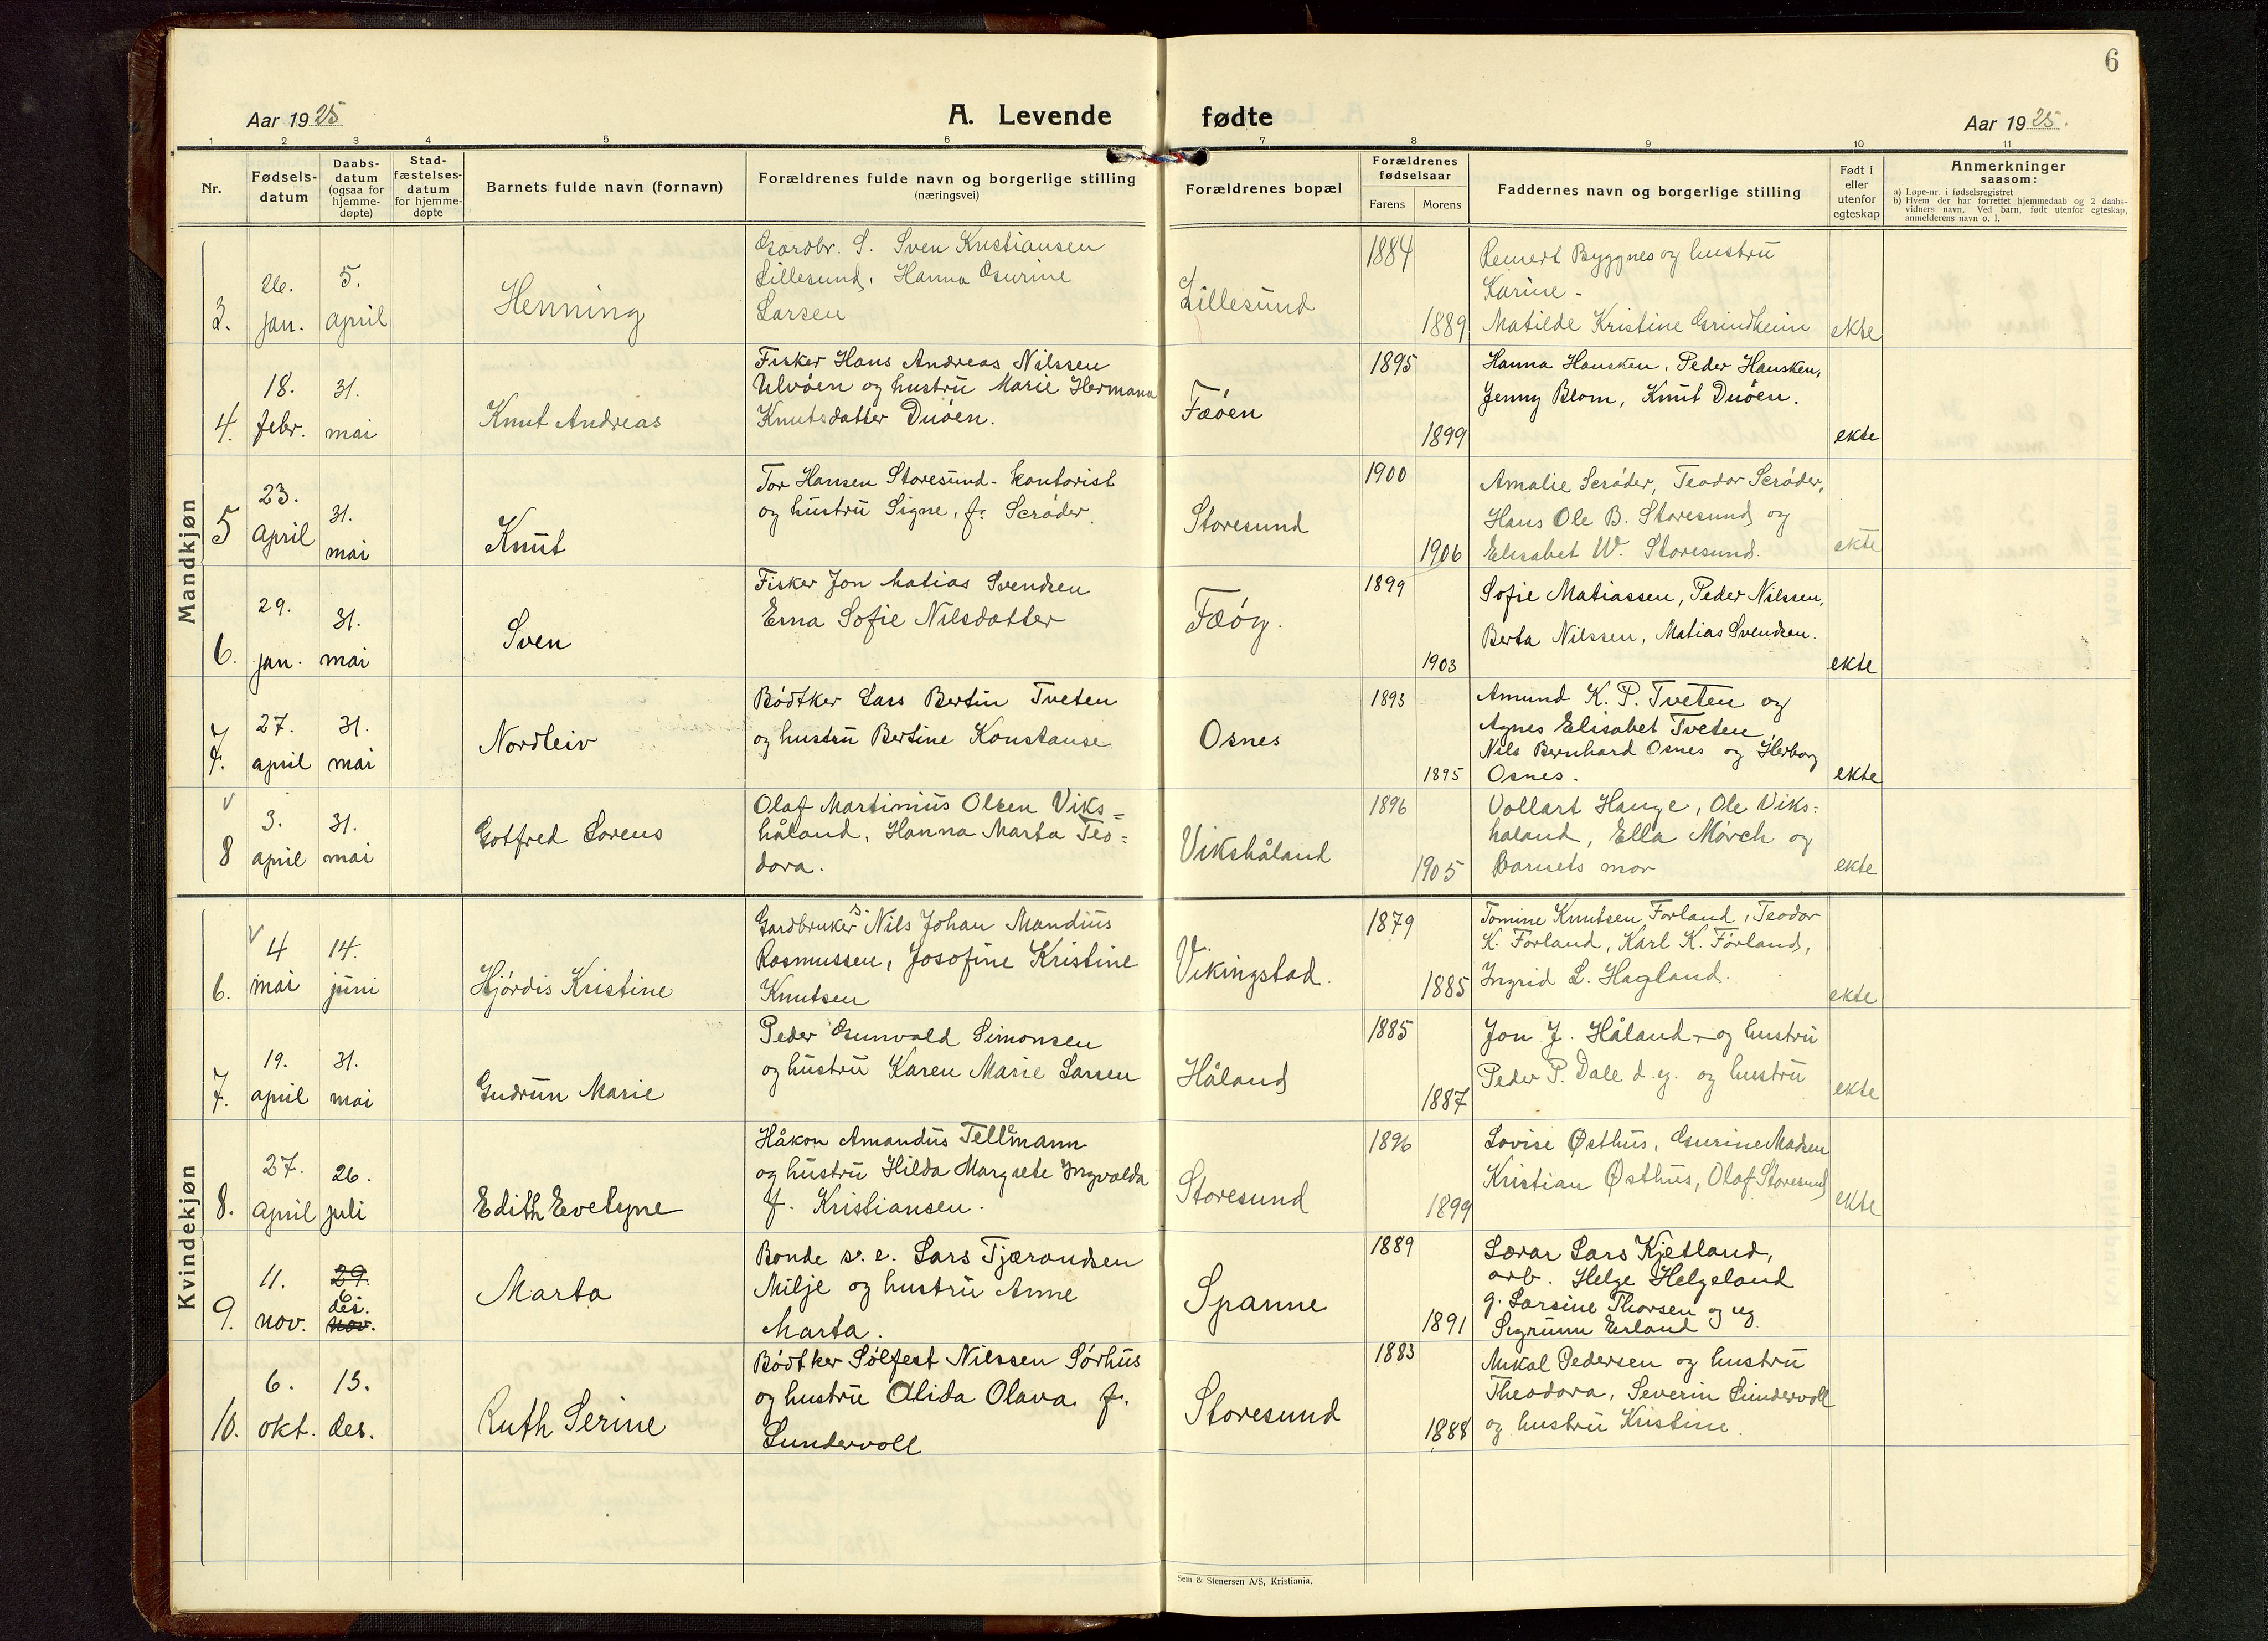 6
Aar 1925
A. Levende
fødte
Aar 1925.
1 2 3 4 5 6 7 8 9 10 11
Nr.
Fødsels-
datum
Daabs-
datum
(ogsaa for
hjemme-
døpte)
Stad-
fæstelses-
datum
for hjemme-
døpte
Barnets fulde navn (fornavn)
Forældrenes fulde navn og borgerlige stilling
(næringsvei)
Forældrenes bopæl
Forældrenes
fødselsaar
Farens
Morens
Faddernes navn og borgerlige stilling
Født i
eller
utenfor
egteskap
Anmerkninger
saasom:
a) Løpe-nr. i fødselsregistret
b) Hvem der har forrettet hjemmedaab og 2 daabs-
vidners navn. Ved barn, født utenfor egteskap,
anmelderens navn o. l.
Mandkjøn
3.
26.
jan.
5.
april
Henning
Gardbr. S. Sven Kristiansen
Lillesund, Hanna Gurine
Larsen
Lillesund
1884
1889
Reinert Byggnes og hustru
Karine -
Matilde Kristine Grindheim
ekte
4.
18.
febr.
31.
mai
Knut Andreas
Fisker Hans Andreas Nilssen
Ulvøen og hustru Marie Hermana
Knutsdatter Duøen.
Fæøen
1895
1899
Hanna Hansken, Peder Hansken,
Jenny Blom, Knut Duøen.
ekte
5
23.
April
31.
mai
Knut
Tor Hansen Storesund - kontorist
og hustru Signe, f. Scrøder.
Storesund
1900
1906
Amalie Scrøder, Teodor Scrøder,
Hans Ole B. Storesund og
Elisabet W. Storesund.
ekte
6.
29.
jan.
31.
mai
Sven
Fisker Jon Matias Svendsen
Erna Sofie Nilsdatter
Fæøy.
1899
1903
Sofie Matiassen, Peder Nilssen,
Berta Nilssen, Matias Svendsen.
ekte
7.
27.
april
31.
mai
Nordleiv
Bødtker Lars Bertin Tveten
og hustru Bertine Konstanse
Osnes
1893
1895
Amund K. P. Tveten og
Agnes Elisabet Tveten,
Nils Bernhard Osnes og Herborg
Osnes.
ekte
8
3.
april
31.
mai
Gotfred Lorens
Olaf Martinius Olsen Viks=
håland, Hanna Marta Teo=
dora.
Vikshåland
1896
1905
Vollart Hauge, Ole Viks=
haland, Ella Mørch og
Barnets mor
ekte
Kvindekjøn
6.
4
mai
14.
juni
Hjørdis Kristine
Gardbruker s. Nils Johan Mandius
Rasmussen, Josofine Kristine
Knutsen
Vikingstad.
1879
1885
Tomine Knutsen Førland, Teodor
K. Førland, Karl K. Førland,
Ingrid L. Hagland.
ekte
7.
19.
april
31.
mai
Gudrun Marie
Peder Gunvald Simonsen
og hustru Karen Marie Larsen
Håland
1885
1887
Jon J. Håland og hustru
Peder P. Dale d.y. og hustru
ekte
8.
27.
April
26.
juli
Edith Evelyne
Håkon Amandus Tellmann
og hustru Hilda Margrete Ingvalda
f. Kristiansen.
Storesund
1896
1899
Lovise Østhus, Gurine Madsen
Kristian Østhus, Olaf Storesund
ekte
9.
11.
nov.
29.
6
des.
nov.
Marta
Bonde s. e. Lars Tjærandsen
Milje og hustru Anne
Marta.
Spanne
1889
1891
Lærar Lars Kjetland,
arb. Helge Helgeland
g. Larsine Thorsen og ug.
Sigrunn Erland
10.
6.
okt.
13.
des.
Ruth Serine
Bødtker Sølfest Nilssen Sørhus
og hustru Alida Olava f.
Sundervoll
Storesund
1883
1888
Mikal Pedersen og hustru
Theodora, Severin Sundervoll
og hustru Kristine.
Sem & Stenersen A/S, Kristiania.